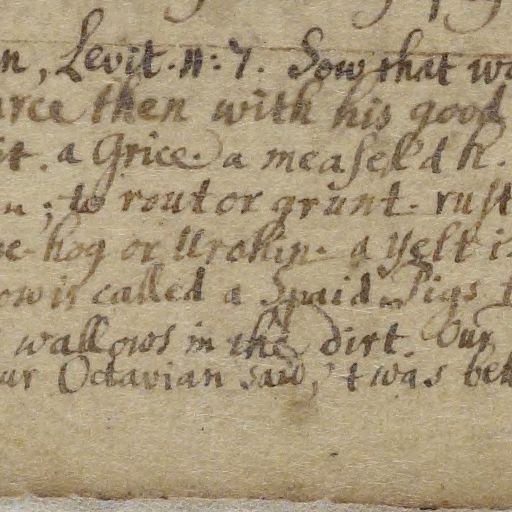 n, Levit. 11: 7. Sow that wa
arce then with his good
it. a Grice. a measel'd h.
n; to rout or grunt. rust
e-hog or Urchin. a yelt is
ow is called a Spaid. Pigs
wallows in the dirt. Our
ur Octavian said, 't was bet